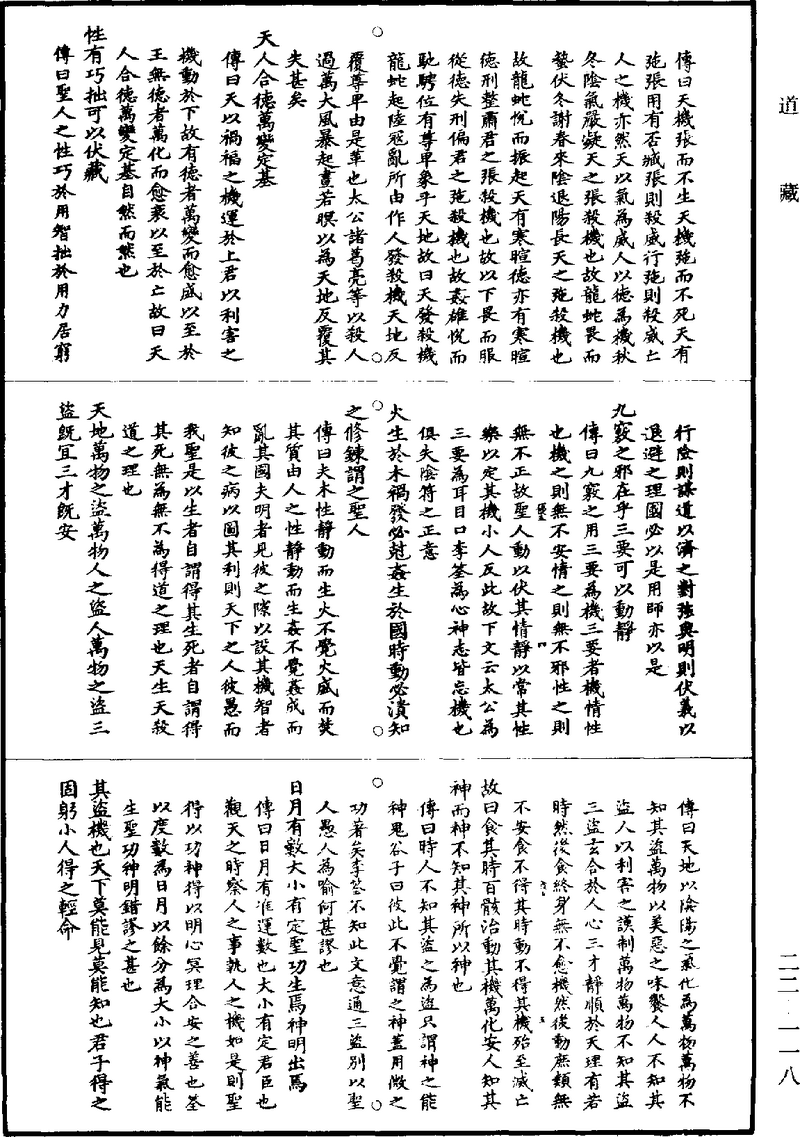 道藏
傳曰天機張而不生天機弛而不死天有
弛張用有否臧張則殺威行弛則殺威亡
人之機亦然天以氣為威人以德為機秋
冬陰氣嚴凝天之張殺機也故龍蛇畏而
蟄伏冬謝春來陰退陽長天之弛殺機也
故龍蛇悅而振起天有寒暄德亦有寒暄
德刑整肅君之張殺機也故以下畏而服
從德失刑偏君之弛殺機也故姦雄悅而
馳騁位有尊卑象乎天地故曰天發殺機
龍蛇起陸寇亂所由作人發殺機天地反
覆尊卑由是革也太公諸葛亮等以殺人
過萬大風暴起晝若暝以為天地反覆其
失甚矣
天人合德萬變定基
傳曰天以禍福之機運於上君以利害之
機動於下故有德者萬變而愈盛以至於
王無德者萬化而愈衰以至於亡故曰天
人合德萬變定基自然而然也
性有巧拙可以伏藏
傳曰聖人之性巧於用智拙於用力居窮
行險則謀道以濟之對強與明則伏義以
退避之理國必以是用師亦以是
九竅之邪在乎三要可以動靜
傳曰九竅之用三要為機三要者機情性
也機之則無不安情之則無不邪性之則
無不正故聖人動以伏其情靜以常其性
樂以定其機小人反此故下文云太公為
三要為耳目口李筌為心神志皆忘機也
俱失陰符之正意
火生於木禍發必尅姦生於國時動必潰知
之修鍊謂之聖人
傳曰夫木性靜動而生火不覺火盛而焚
其質由人之性靜動而生姦不覺姦成而
亂其國夫明者見彼之隙以設其機智者
知彼之病以圖其利則天下之人彼愚而
我聖是以生者自謂得其生死者自謂得
其死無為無不為得道之理也天生天殺
道之理也
天地萬物之盜萬物人之盜人萬物之盜三
盜既宜三才既安
傳曰天地以陰陽之氣化為萬物萬物不
知其盜萬物以美惡之味饗人人不知其
盜人以利害之謨制萬物萬物不知其盜
三盜玄合於人心三才靜順於天理有若
時然後食終身無不愈機然後動庶類無
不安食不得其時動不得其機殆至滅亡
故曰食其時百骸治動其機萬化安人知其
神而神不知其神所以神也
傳曰時人不知其盜之為盜只謂神之能
神鬼谷子曰彼此不覺謂之神蓋用微之
功著矣李筌不知此文意通三盜別以聖
人愚人為喻何甚謬也
日月有數大小有定聖功生焉神明出焉
傳曰日月有准運數也大小有定君臣也
觀天之時察人之事執人之機如是則聖
得以功神得以明心冥理合安之善也筌
以度數為日月以餘分為大小以神氣能
生聖功神明錯謬之甚也
其盜機也天下莫能見莫能知也君子得之
固躬小人得之輕命
二二·一一八